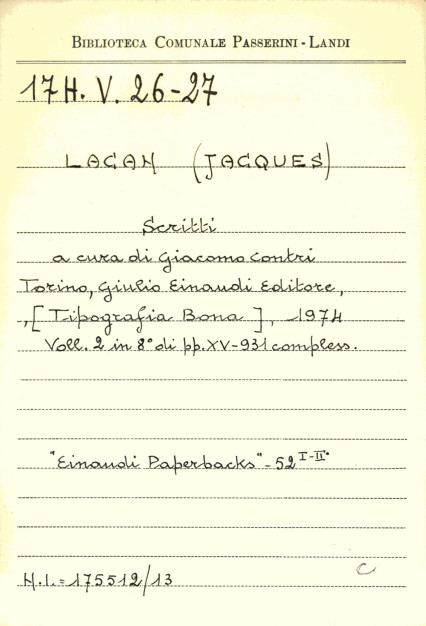 BIBLIOTECA COMUNALE PASSERINI - LANDI
17 H. V. 26-27
LACAN (JACQUES)
Scritti
a cura di Giacomo Contri
Torino, Giulio Einaudi Editore,
,[Tipografia Bona], 1974
Voll. 2 in 8° di pp. XV-931 compless.
"Einaudi Paperbacks" - 52 I-II"
N.I. = 175512/13
C